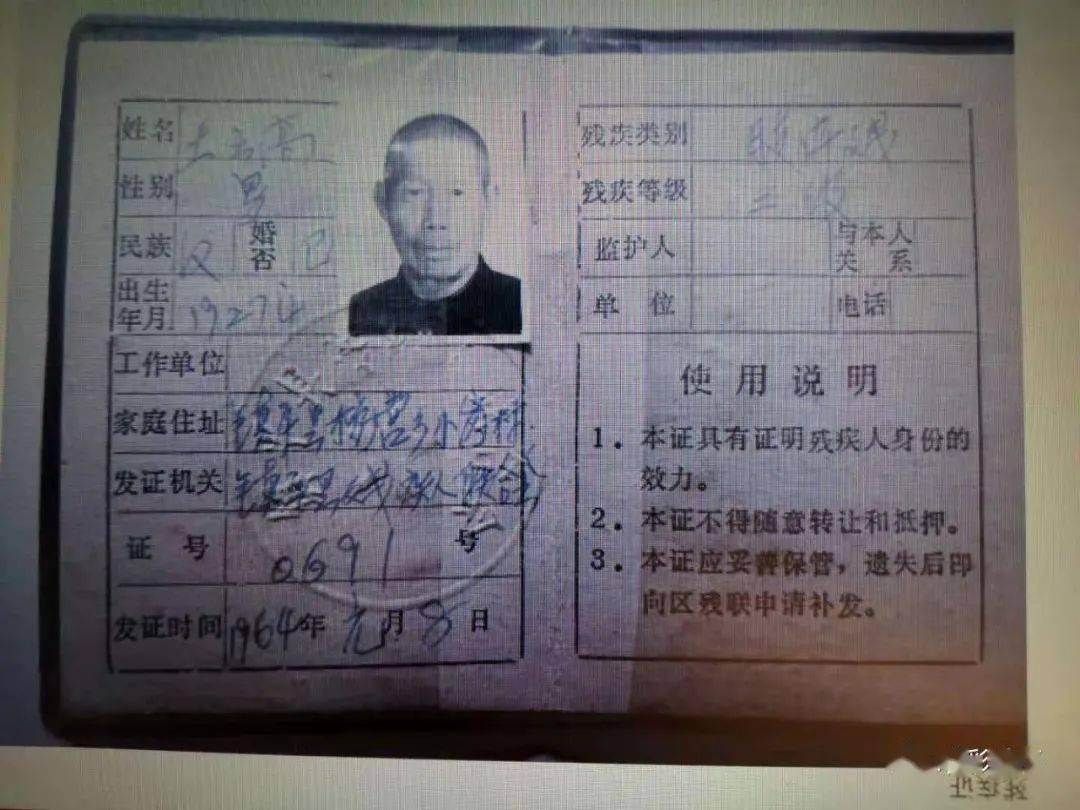 姓名
性别 男
民族 汉 婚否 已
出生年月 1927年
工作单位
家庭住址 镇平县
发证机关 镇平县残疾人联合会
证号 0691 号
发证时间 1964年元月8日
残疾类别
残疾等级 二级
监护人 与本人关系
单位 电话
使用说明
1. 本证具有证明残疾人身份的
效力。
2. 本证不得随意转让和抵押。
3. 本证应妥善保管，遗失后即
向区残联申请补发。
残疾证